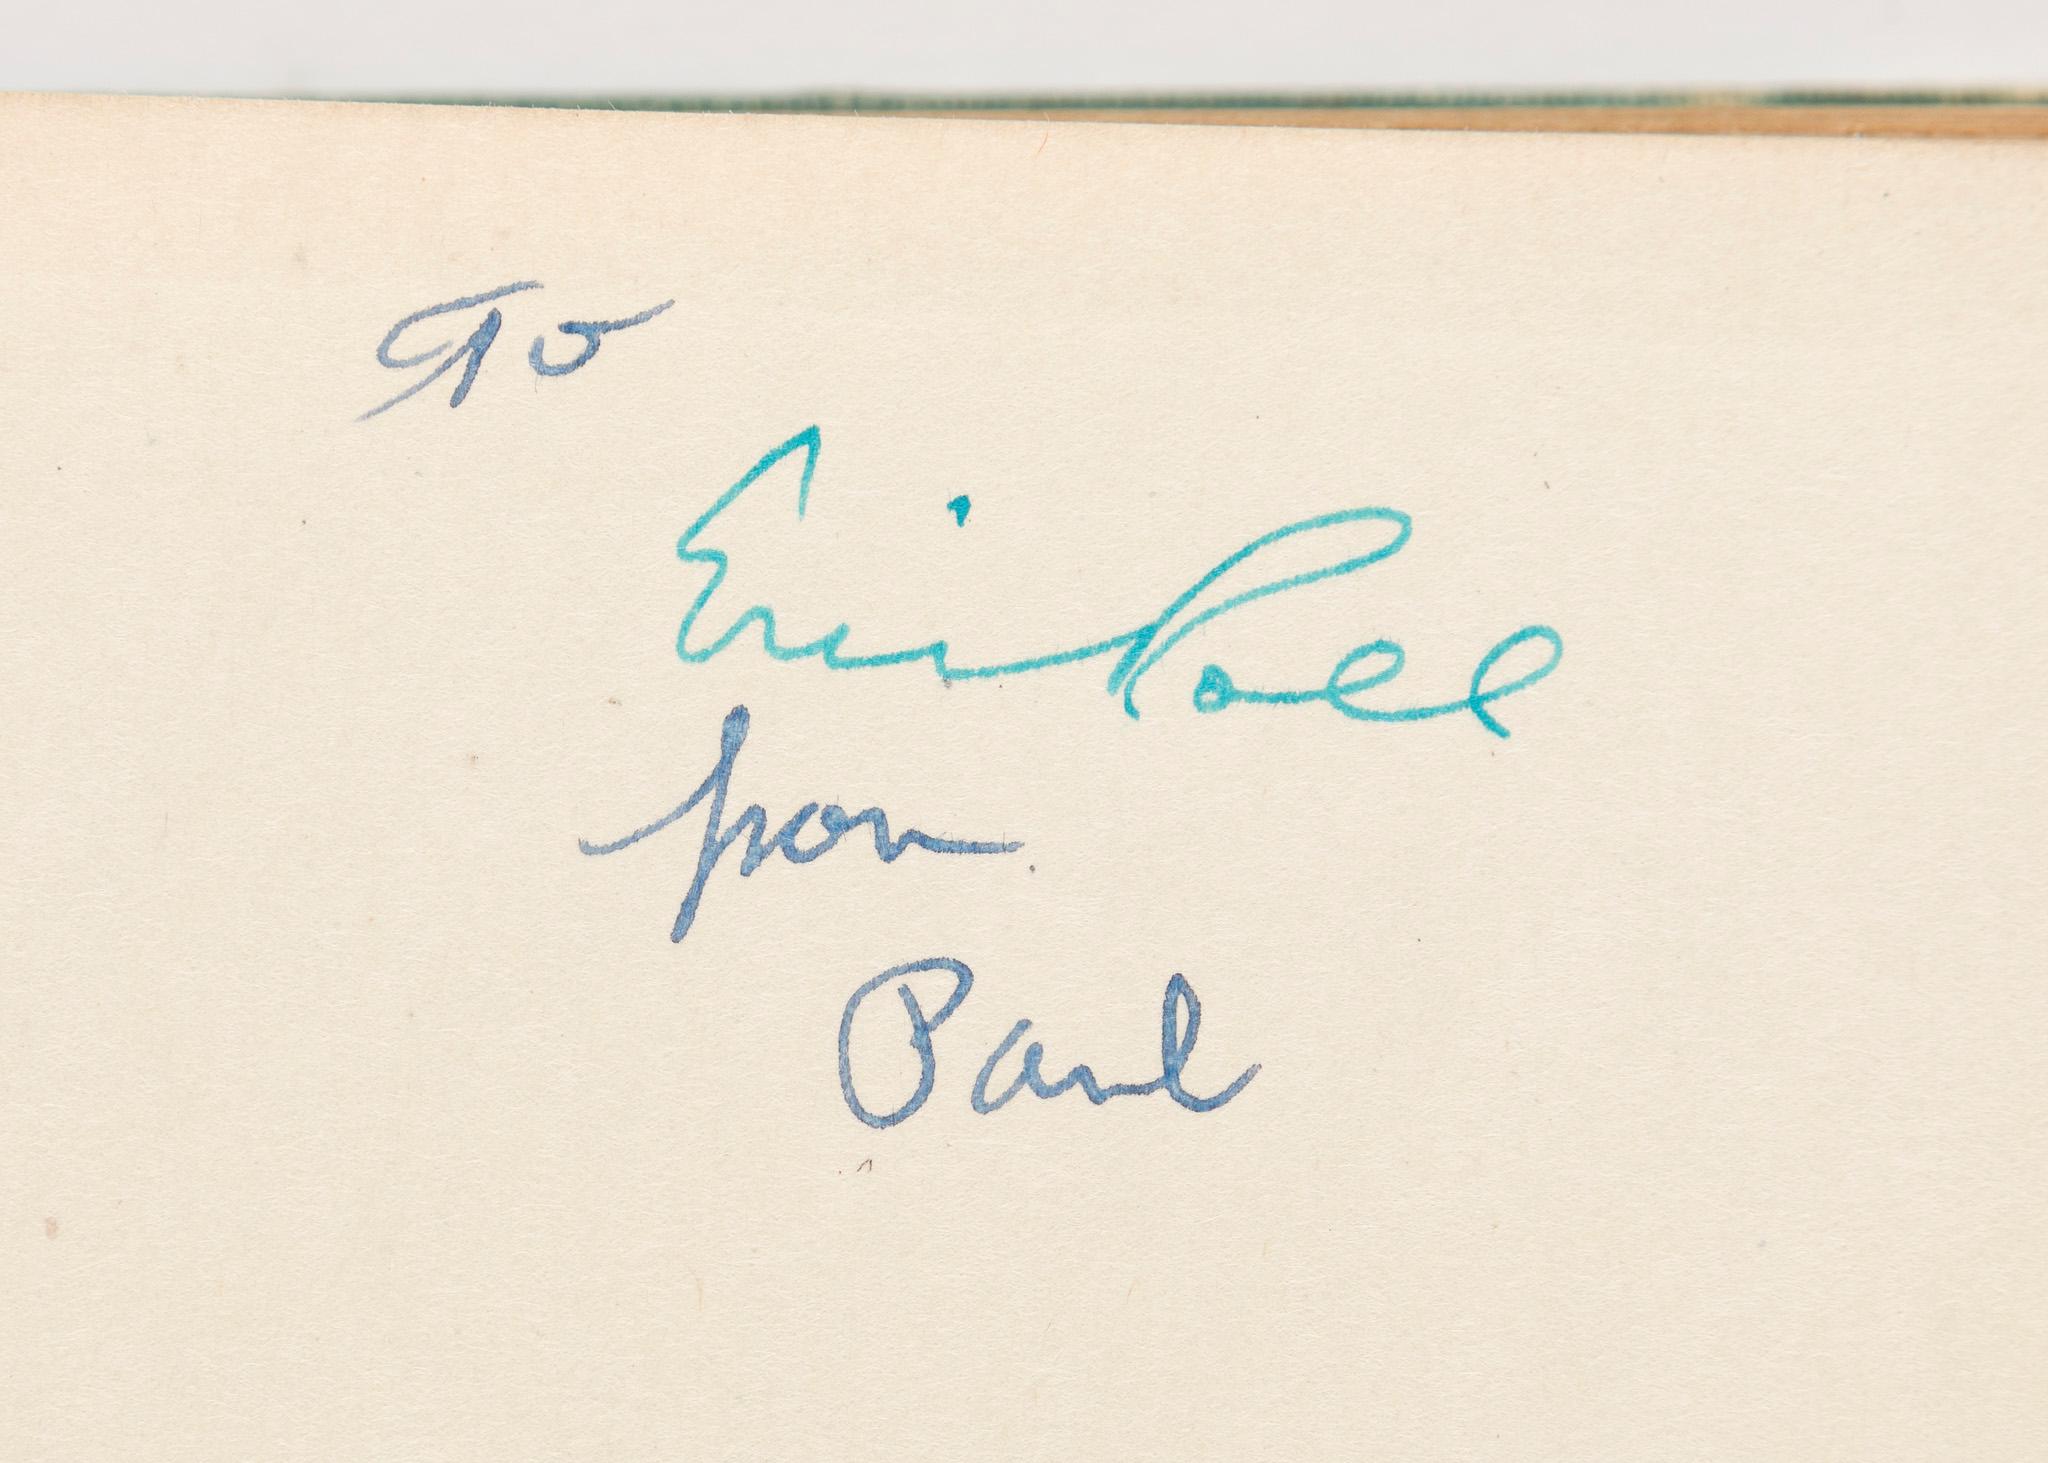 To
Eric Roll
from
Paul